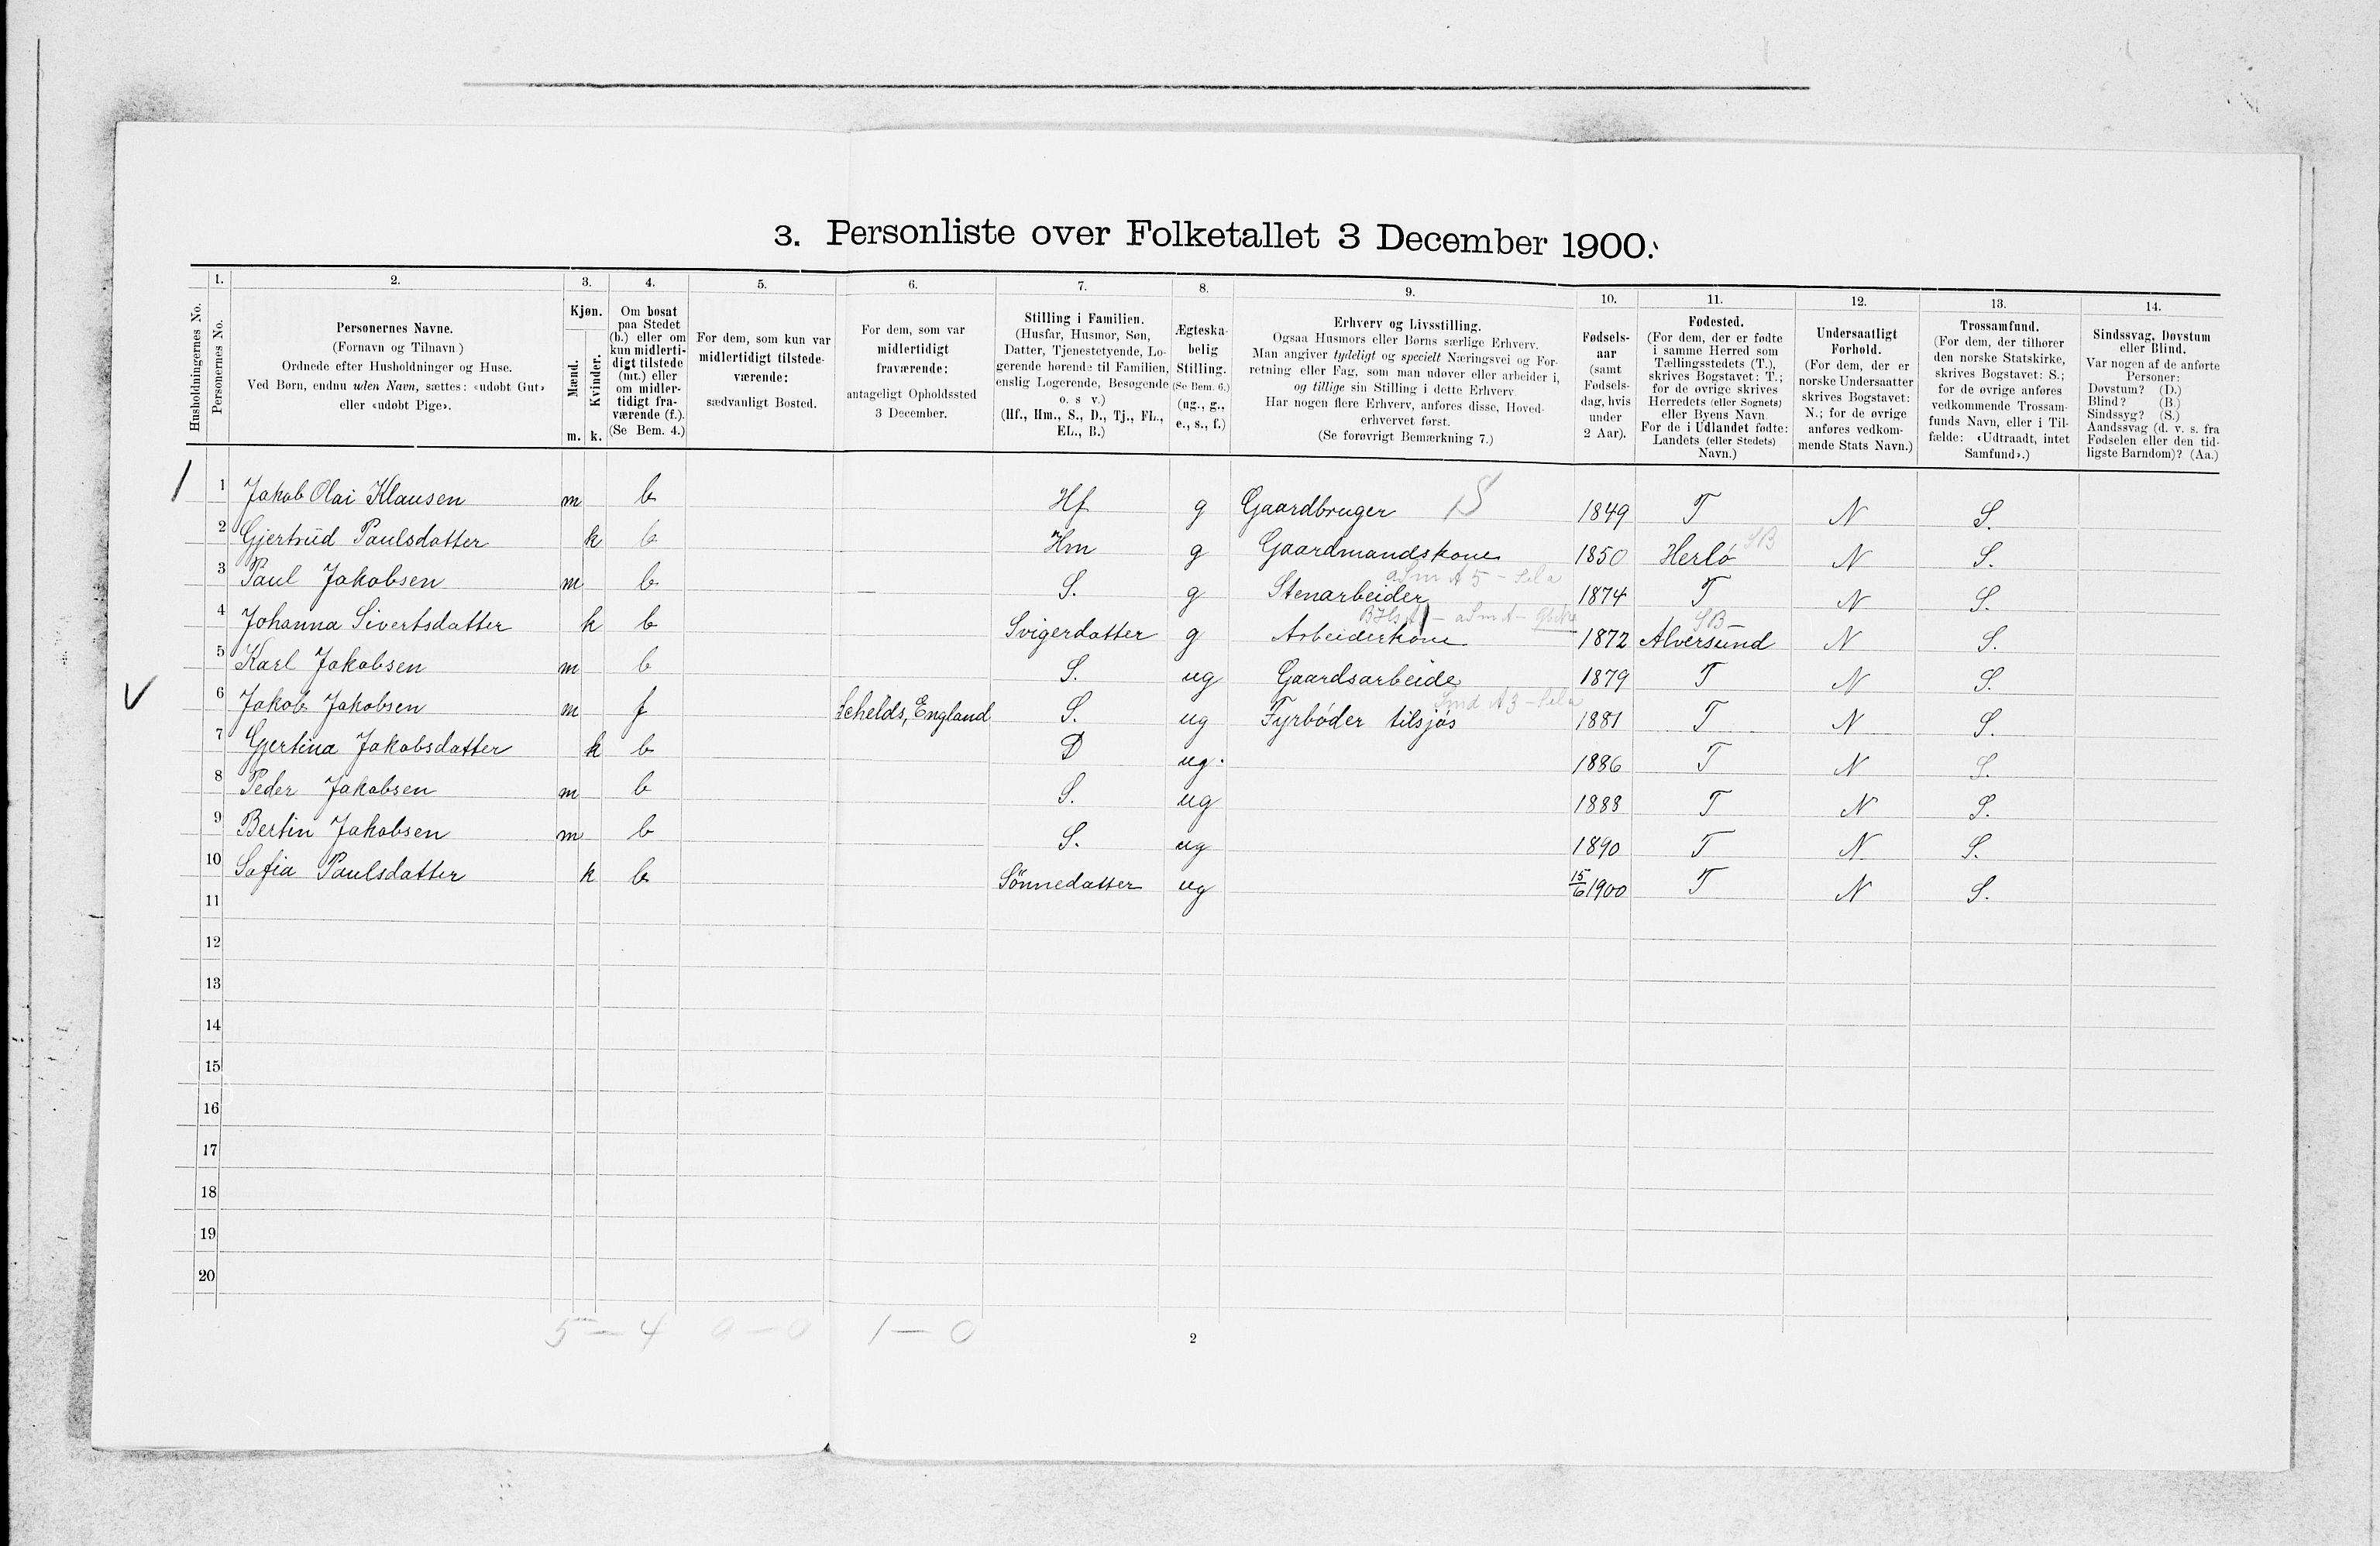 3. Personliste over Folketallet 3 December 1900.
1. 2. 3. 4. 5. 6. 7. 8. 9. 10. 11. 12. 13. 14.
Husholdningernes No.
Personernes No.
Personernes Navne.
(Fornavn og Tilnavn)
Ordnede efter Husholdninger og Huse.
Ved Børn, endnu uden Navn, sættes: «udøbt Gut»
eller «udøbt Pige».
Kjøn.
Mænd.
Kvinder.
m. k.
Om bosat
paa Stedet
(b.) eller om
kun midlerti-
digt tilstede
(mt.) eller
om midler-
tidigt fra-
værende (f.).
(Se Bem. 4.)
For dem, som kun var
midlertidigt tilstede-
værende:
sædvanligt Bosted.
For dem, som var
midlertidigt
fraværende:
antageligt Opholdssted
3 December.
Stilling i Familien.
(Husfar, Husmor, Søn,
Datter, Tjenestetyende, Lo-
gerende hørende til Familien,
enslig Logerende, Besøgende
o. s v.)
(Hf., Hm., S., D., Tj., FL.,
EL., B.)
Ægteska-
belig
Stilling.
(Se Bem. 6.)
(ug., g.,
e., s., f.)
Erhverv og Livsstilling.
Ogsaa Husmors eller Børns særlige Erhverv.
Man angiver tydeligt og specielt Næringsvei og For-
retning eller Fag, som man udøver eller arbeider i,
og tillige sin Stilling i dette Erhverv.
Har nogen flere Erhverv, anføres disse, Hoved-
erhvervet først.
(Se forøvrigt Bemærkning 7.)
Fødsels-
aar
(samt
Fødsels-
dag, hvis
under
2 Aar).
Fødested.
(For dem, der er fødte
i samme Herred som
Tællingsstedets (T.),
skrives Bogstavet: T.;
for de øvrige skrives
Herredets (eller Sognets)
eller Byens Navn.
For de i Udlandet fødte:
Landets (eller Stedets)
Navn.)
Undersaatligt
Forhold.
(For dem, der er
norske Undersaatter
skrives Bogstavet:
N.; for de øvrige
anføres vedkom-
mende Stats Navn.)
Trossamfund.
(For dem, der tilhører
den norske Statskirke,
skrives Bogstavet: S.;
for de øvrige anføres
vedkommende Trossam-
funds Navn, eller i Til-
fælde: «Udtraadt, intet
Samfund».)
Sindssvag, Døvstum
eller Blind.
Var nogen af de anførte
Personer:
Døvstum? (D.)
Blind? (B.)
Sindssyg? (S.)
Aandssvag (d. v. s. fra
Fødselen eller den tid-
ligste Barndom)? (Aa.)
1 1 Jakob Olai Klausen m b Hf g Gaardbruger 1849 T N S.
2 Gjertrud Paulsdatter k b Hm g Gaardmandskone 1850 Herlö SB N S.
3 Paul Jakobsen m b S. g Stenarbeider 1874 T N S.
4 Johanna Sivertsdatter k b Svigerdatter g Arbeiderkone 1872 Alversund SB N S.
5 Karl Jakobsen m b S. ug Gaardsarbeide 1879 T N S.
6 Jakob Jakobsen m f Schelds, England S. ug Fyrbóder tilsjós 1881 T N S.
7 Gjertina Jakobsdatter k b D ug. 1886 T N S.
8 Peder Jakobsen m b S. ug 1888 T N S.
9 Bertin Jakobsen m b S. ug 1890 T N S.
10 Sofia Paulsdatter k b Sönnedatter ug 15/6 1900 T N S.
11
12
13
14
15
16
17
18
19
20
5 — 4 0 — 0 1 — 0
2